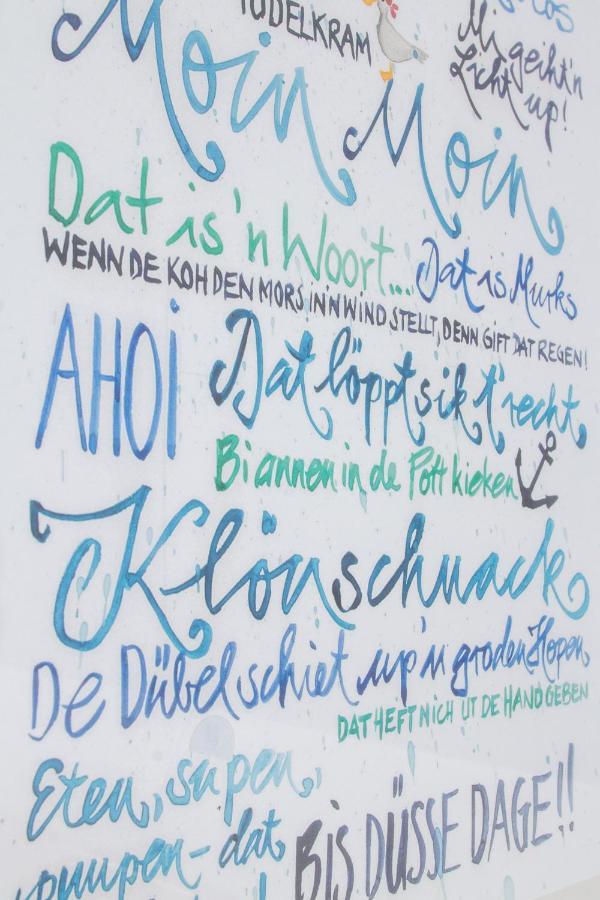 TÜDELKRAM
Mi geiht'n
Licht up!
Moin Moin
Dat is'n Woort... Dat is Murks
WENN DE KOH DEN MORS IN'N WIND STELLT, DENN GIFT DAT REGEN!
AHOI Dat löppt sik t'recht,
Bi annen in de Pott kieken
Klönschnack
De Dübel schiet up'n groden Hopen,
DAT HEFT MICH UT DE HAND GEBEN
Eten, supen,
pumpen - dat
BIS DÜSSE DAGE!!